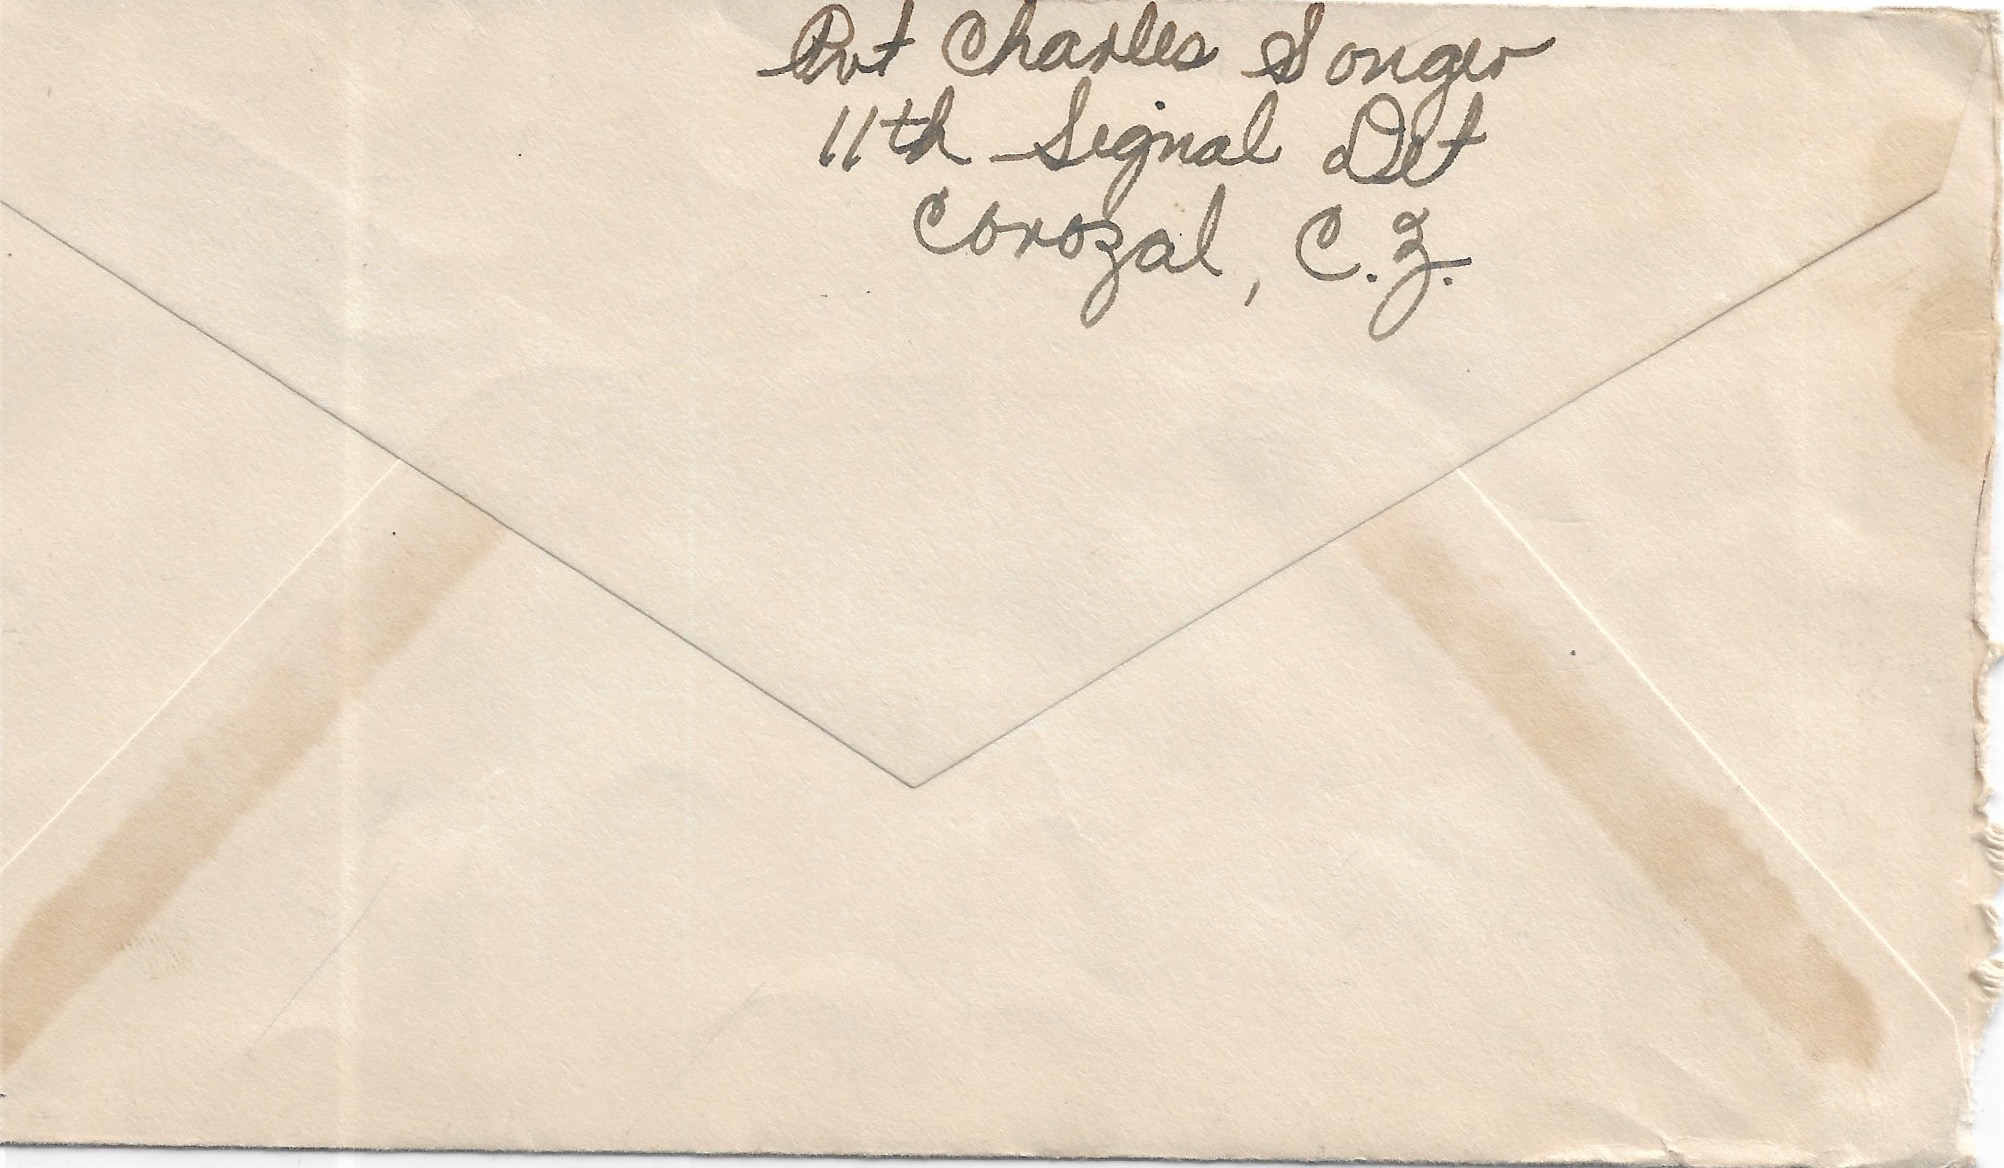 Pvt Charles Songer
11th Signal Det
Corozal, C.Z.